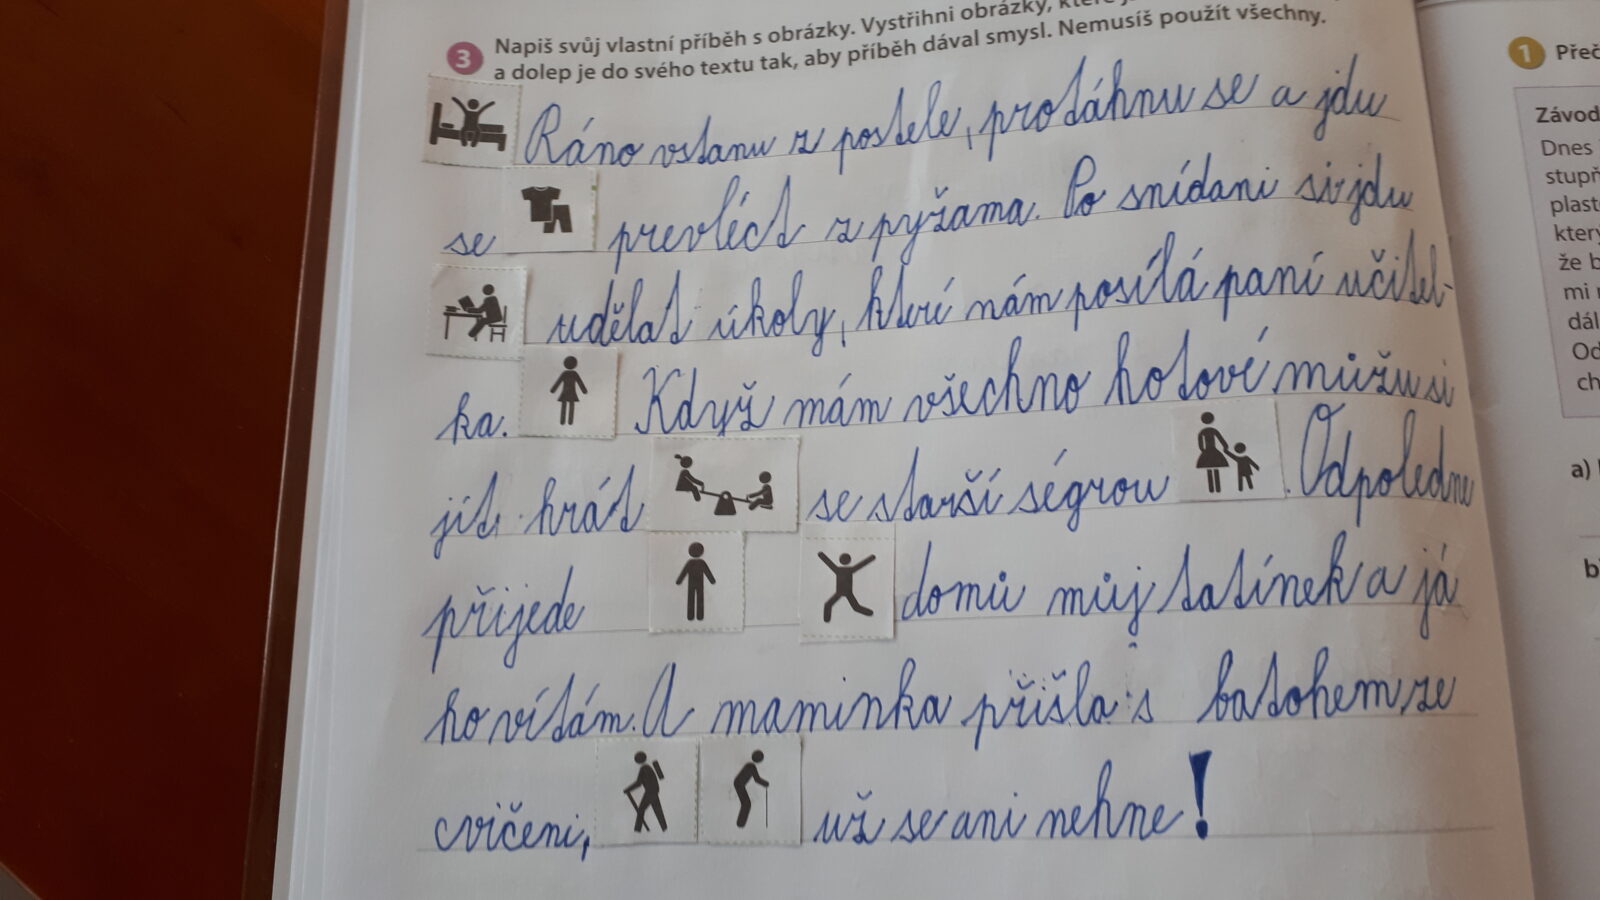 3 Napiš svůj vlastní příběh s obrázky. Vystřihni obrázky, které
a dolep je do svého textu tak, aby příběh dával smysl. Nemusíš použít všechny.
Ráno vstanu z postele, protáhnu se a jdu
se prevléct z pyžama. Po snídani si jdu
udělat úkoly, kteří nám posílá paní učitel-
ka. Když mám všechno hotové můžu si
jít hrát se starší ségrou . Odpoledne
přijede domů můj tatínek a já
ho vítám. A maminka přišla s batohem, ze
cvičeni, už se ani nehne!
1 Přeč
Závod
Dnes
stupň
plast
který
že b
mi
dál
Od
ch
a)
b)